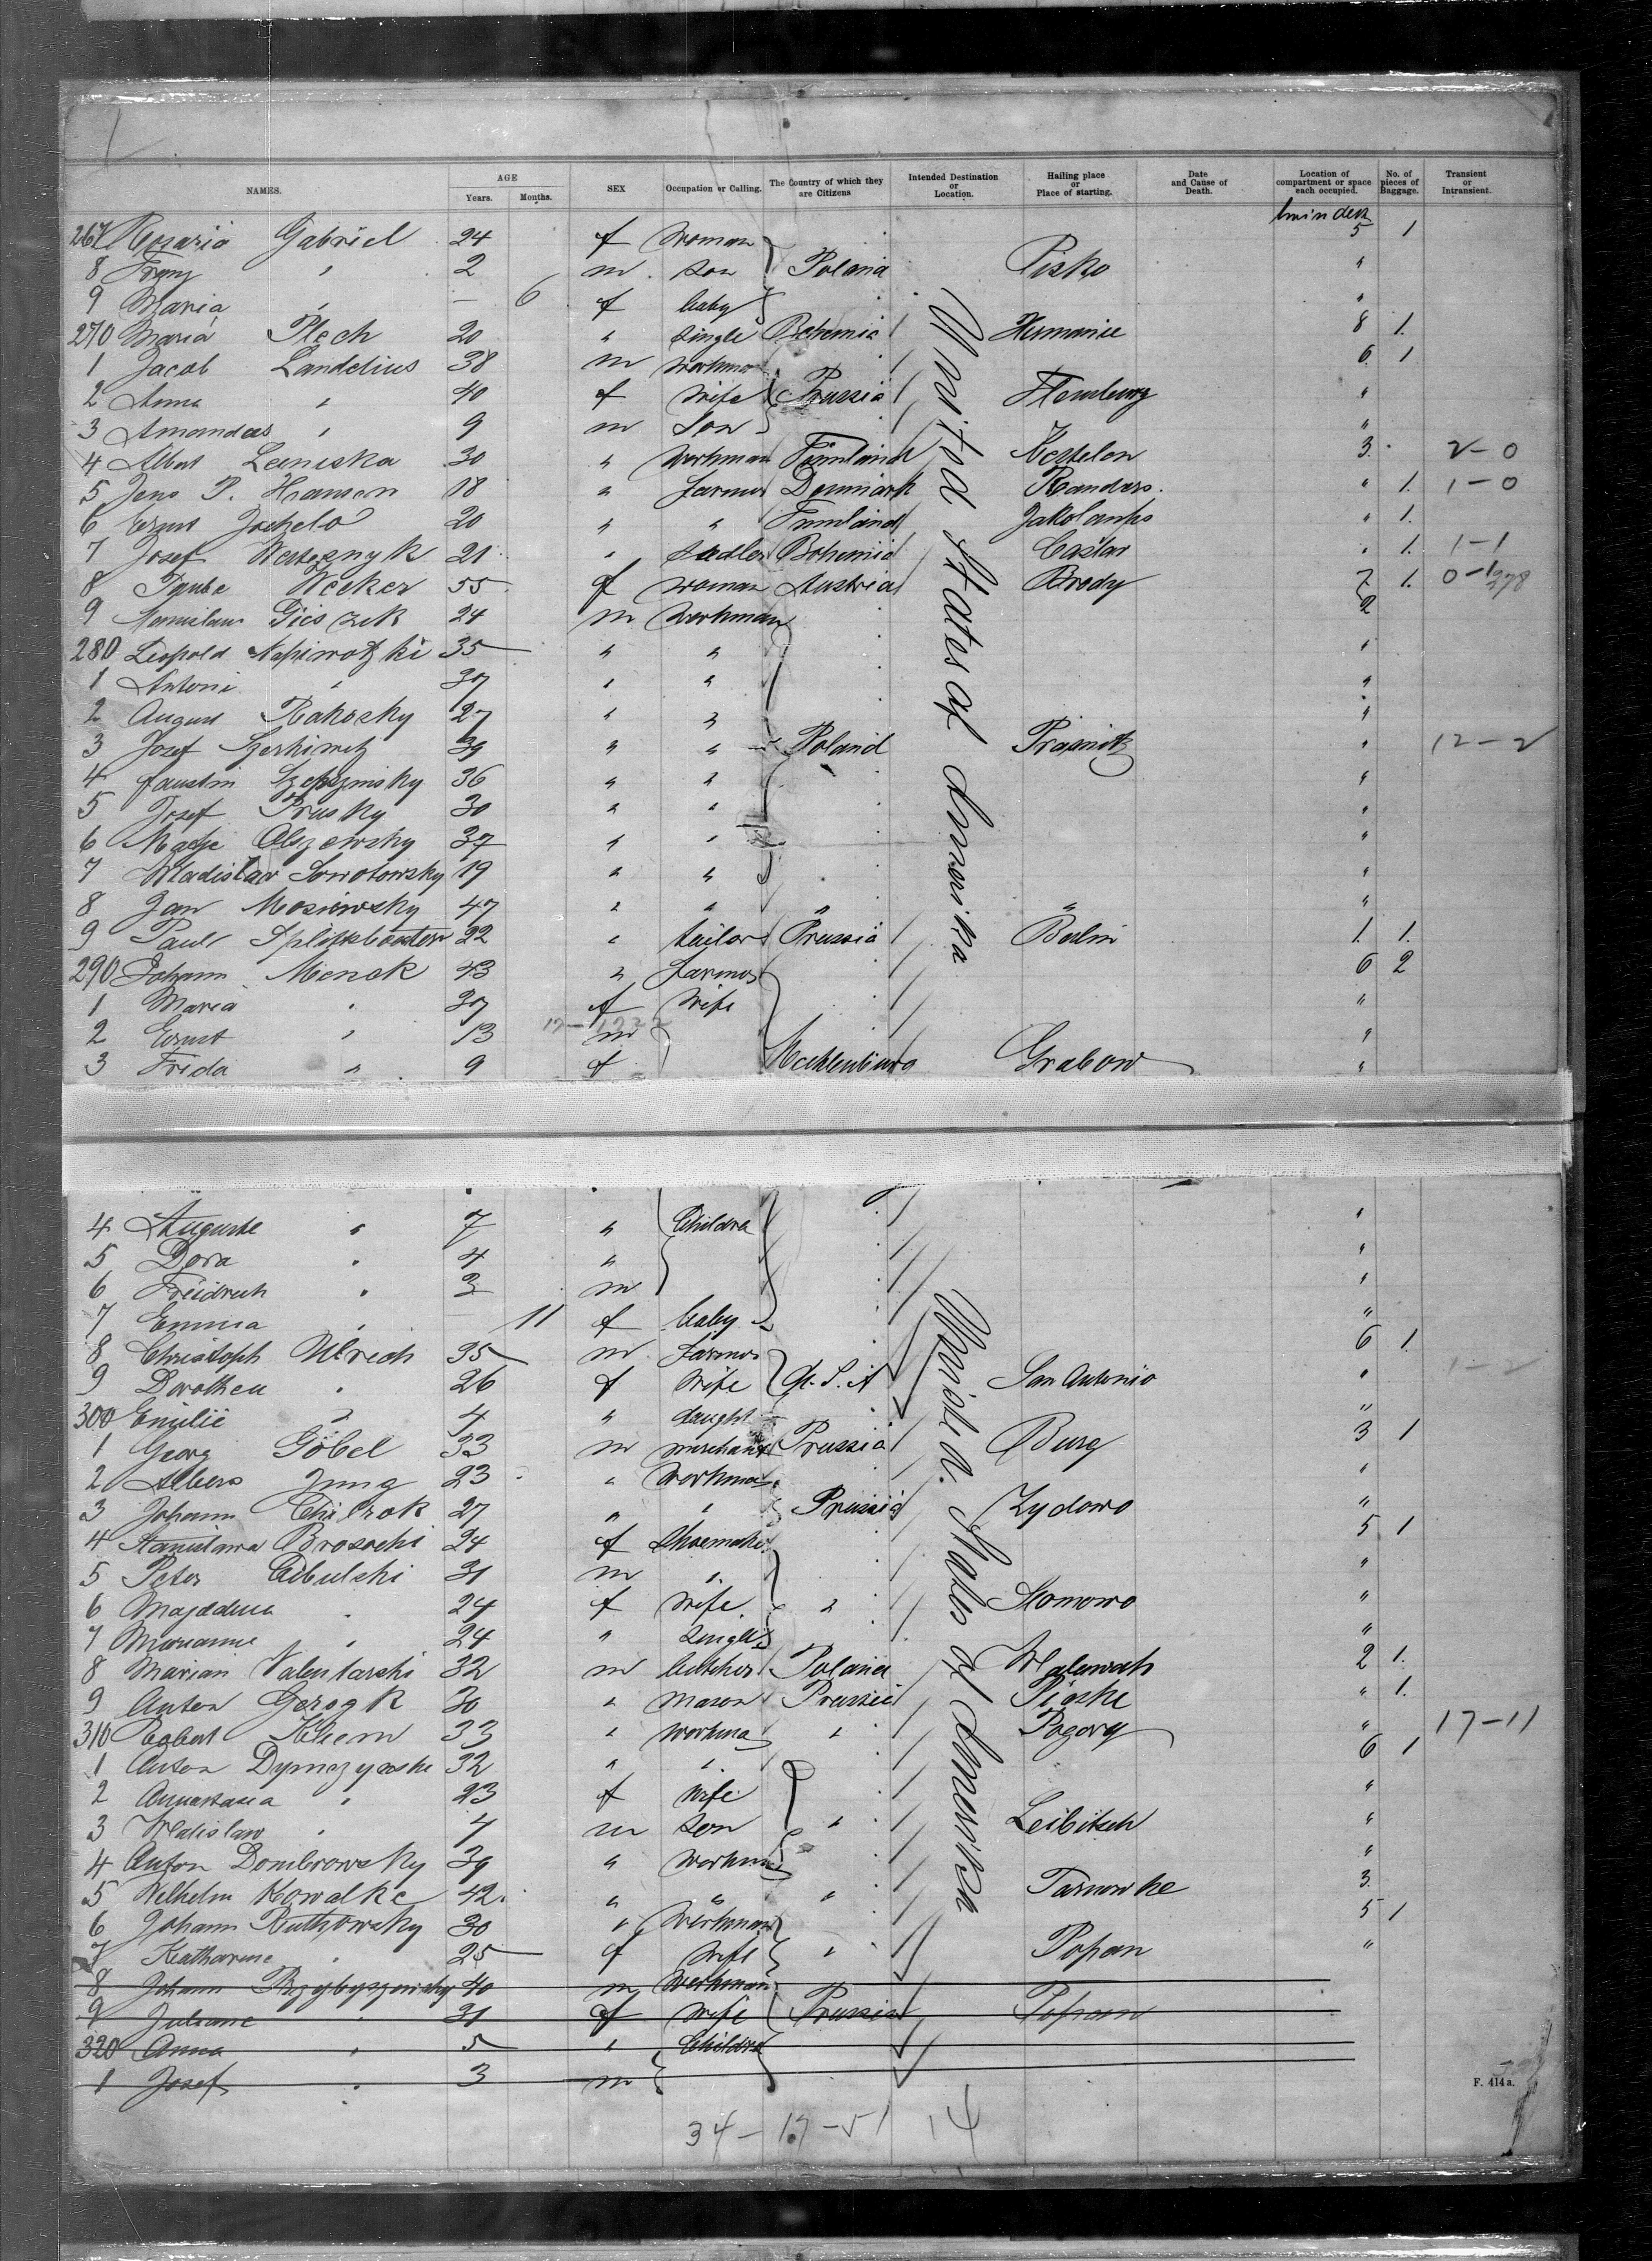 NAMES. AGE Years. Months. SEX Occupation or Calling. The Country of which they are Citizens Intended Destination or Location. Hailing place or Place of starting. Date and Cause of Death. Location of compartment or space each occupied. No. of pieces of Baggage. Transient or Intransient.
267 Rosaria Gabriel 24 f woman 5 1
8 Franz " 2 m son Poland Pisko "
9 Maria " — 6 f baby "
270 Maria Plech 20 " single Bohemia 8 1.
1 Jacob Landelius 38 m workman 6 1
2 Anna " 40 f wife Prussia "
3 Amandus " 9 m son "
4 Albert Leeniska 30 " workman Finnland 3. 2-0
5 Jens P. Hansen 18 " farmer Denmark Randers. " 1. 1-0
6 Ernst 20 " " Finnland " 1.
7 Josef 21 " sadler Bohemia Castar " 1. 1-1
8 Taube Wecker 55 f woman Austria Brody 7 1. 0-1 278
9 24 m workman 2
280 Leopold Napiwotzki 35 " " "
1 Antoni " 37 " " "
2 August Rakosky 27 " " "
3 Josef 39 " " Poland Prasnitz " 12-2
4 Faustin 36 " " "
5 Josef Prusky 30 " " "
6 Olszewsky 37 " " "
7 Wladislav Sowotowsky 19 " " "
8 Jan Mosiewsky 47 " " " " "
9 Paul 22 " tailor Prussia Berlin 1. 1.
290 Johann Menck 43 " farmer 6 2
1 Maria " 37 f wife "
2 Ernst " 13 m "
3 Frida " 9 f Mecklenburg Grabow "
United States of America
4 Auguste " 7 " Childre "
5 Dora " 4 " "
6 Freidrich " 3 m "
7 Emma " — 11 f baby "
8 Christoph Ulrich 35 m farmer 6 1.
9 Dorothea " 26 f wife U.S.A San Antonio " 1-2
300 Emilie " 4 " daught "
1 Georg Göbel 33 m merchant Prussia Burg 3 1
2 Albers Jung 23 " workman "
3 Johann 27 " " Prussia Zydowo "
4 Stanislawa Brosochi 24 f Shoemaker 5 1
5 Peter Cibulski 31 m " "
6 Magdelena " 24 f wife " Slomowo "
7 Marianne " 24 " single "
8 Marian 32 m butcher Poland 2 1.
9 Anton 30 " mason Prussia Piaske " 1.
310 Robert Kliem 33 " workma " " 17-11
1 Anton 32 " " 6 1
2 " 23 f wife "
3 Wladislaw " 4 m son " Leibitsch "
4 Anton Dombrowsky 39 " workman "
5 Wilhelm Kowalke 42. " " " Tarnowke 3.
6 Johann Rutkowsky 30 " workman 5 1
7 Katharine " 25 f wife " Posan "
8 Johann Przybyszewsky 40 m workman
9 Juliane " 31 f wife Prussia Posan
320 Anna " 5 " Childre
1 Josef " 3 m
United States of America
F. 414a.
34-17-51 14